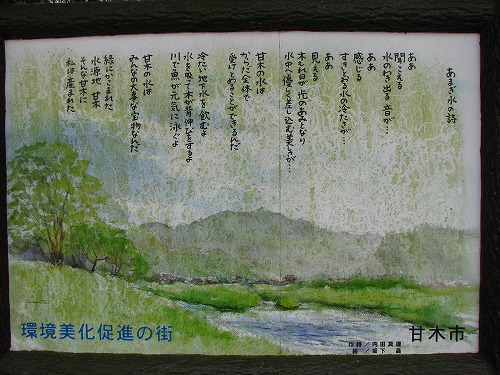 あまぎ水の詩
ああ
聞こえる
水のわき出る音が…
ああ
感じる
すきとおる水の冷たさが…
ああ
見える
木もれ日が光のあみとなり
水中に優しく差し込む美しさが…
甘木の水は
からだ全体で
受けとめることができるんだ
冷たい地下水を飲むよ
水を吸って木が背伸びをするよ
川で魚が元気に泳ぐよ
甘木の水は
みんなの大事な宝物なんだ
緑にかこまれた
水源地 甘木
そんな甘木に
私は産まれた
環境美化促進の街
甘木市
作詩/内田真理
絵/坂下